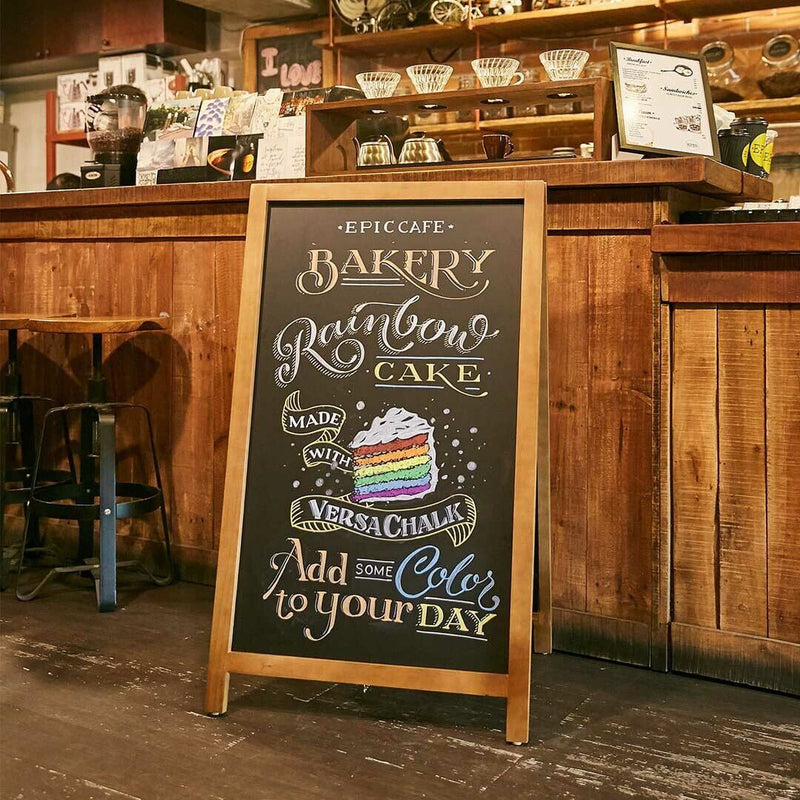 I
LOVE
Breakfast
Sandwiches
• EPIC CAFE •
BAKERY
Rainbow
CAKE
MADE
WITH
VERSACHALK
Add SOME Color
to your DAY